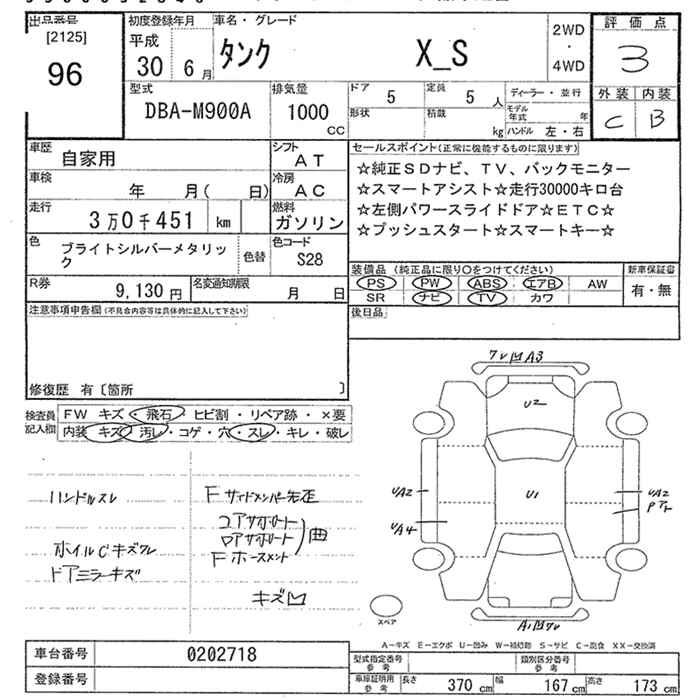 出品番号
[2125]
96
初度登録年月
平成
30 6月
車名・グレード
タンク X_S
2WD
・
4WD
評価点
3
外装 内装
C B
型式
DBA-M900A
排気量
1000
cc
ドア 5
定員 5 人
形状
積載 kg
ディーラー・並行
モデル年式 年
ハンドル 左・右
車歴 自家用
シフト AT
車検 年 月( 日)
冷房 AC
走行 3万0千451 km
燃料 ガソリン
色 ブライトシルバーメタリック
色替
色コード S28
R券 9,130円
名変通知期限 月 日
セールスポイント(正常に機能するものに限ります)
☆純正SDナビ、TV、バックモニター
☆スマートアシスト☆走行30000キロ台
☆左側パワースライドドア☆ETC☆
☆プッシュスタート☆スマートキー☆
装備品(純正品に限り○をつけてください)
新車保証書
PS PW ABS エアB AW
SR ナビ TV カワ
有・無
後日品
注意事項申告欄(不具合内容等は具体的に記入して下さい)
修復歴 有〔箇所 〕
検査員記入欄
FW キズ・飛石・ヒビ割・リペア跡・×要
内装 キズ・汚レ・コゲ・穴・スレ・キレ・破レ
ハンドルスレ
ホイルCキズワレ
ドアミラーキズ
Fサイドメンバー先正
コアサポート
ロアサポート
曲
Fホースメント
キズ凹
ワレ凹A3
U2
U1
UA2
UA4
UA2
Pアト
A1凹ワレ
スペア
A-キズ E-エクボ U-凹み W-補修跡 S-サビ C-腐食 XX-交換済
車台番号 0202718
登録番号
型式指定番号
参考
類別区分番号
参考
車庫証明用
参考
長さ 370cm 幅 167cm 高さ 173cm